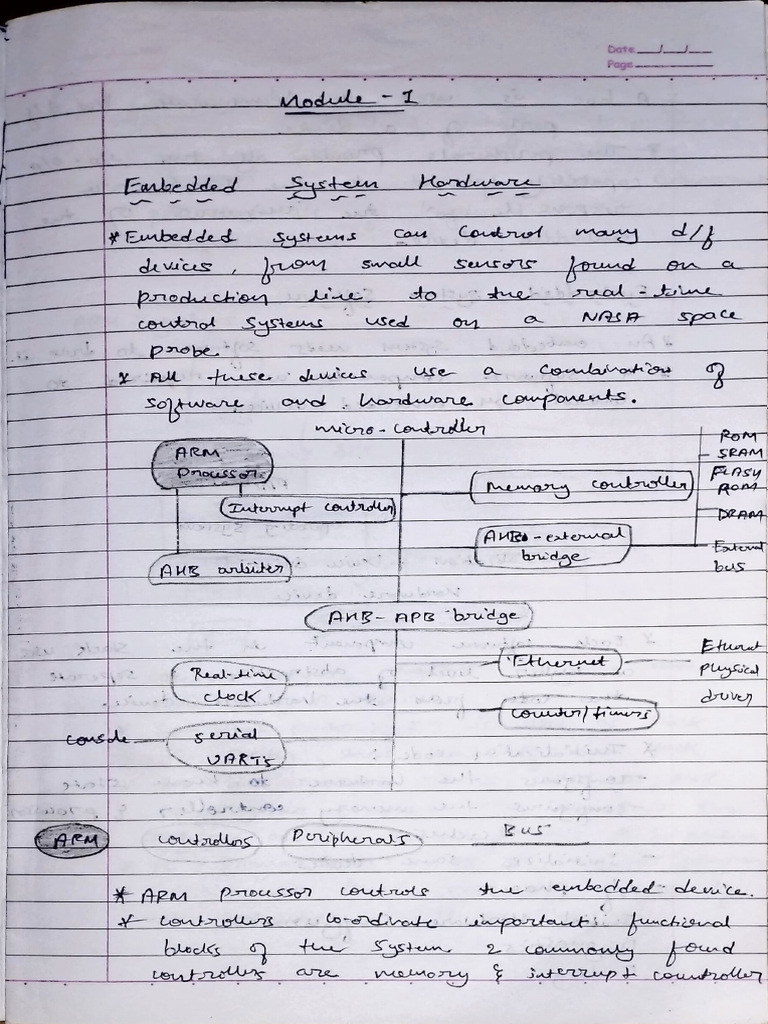 Date __/__/__
Page
Module - I
Embedded System Hardware
* Embedded systems can control many d/f
devices, from small sensors found on a
production line to the real-time
control systems used on a NASA space
probe.
* All these devices use a combination of
software and hardware components.
micro-controller
ARM
Processor
Interrupt controller
AHB arbiter
Memory controller
AHB-external
bridge
ROM
SRAM
FLASH
ROM
DRAM
External
bus
AHB-APB bridge
Real-time
clock
Ethernet
Ethernet
physical
driver
counter/timers
console
serial
UARTs
ARM controllers Peripherals Bus
* ARM processor controls the embedded device.
* controllers co-ordinate important functional
blocks of the system 2 commonly found
controllers are memory & interrupt countroller